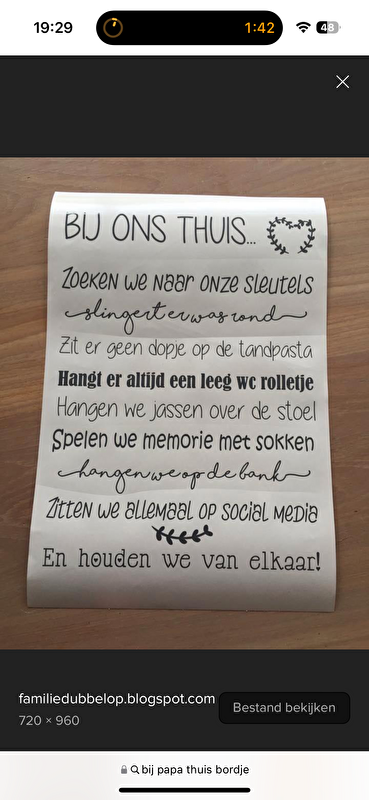 19:29
1:42
48
BIJ ONS THUIS...
Zoeken we naar onze sleutels
slingert er was rond
Zit er geen dopje op de tandpasta
Hangt er altijd een leeg wc rolletje
Hangen we jassen over de stoel
Spelen we memorie met sokken
hangen we op de bank
Zitten we allemaal op social media
En houden we van elkaar!
familiedubbelop.blogspot.com
720 × 960
Bestand bekijken
bij papa thuis bordje